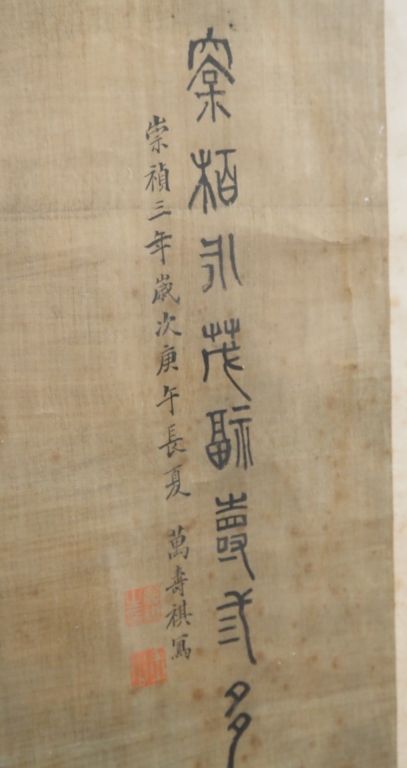 松柏永茂福壽多
崇禎三年歲次庚午長夏 萬壽祺寫